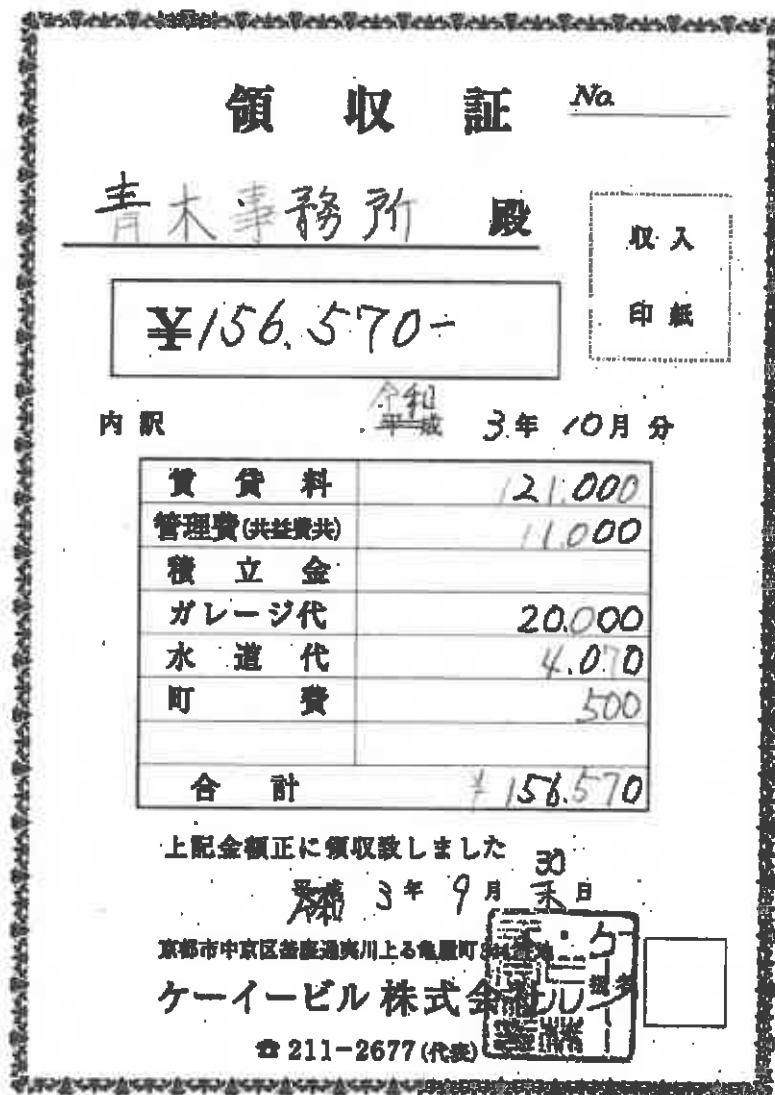 領収証 No.
青木事務所 殿
収入
印紙
¥156.570-
内訳 令和 平成 3年 10月分
賃貸料 121.000
管理費(共益費共) 11.000
積立金
ガレージ代 20.000
水道代 4.070
町費 500
合計 ¥156.570
上記金額正に領収致しました
令和 3年 9月 30日
京都市中京区釜座通夷川上る亀屋町
ケーイービル株式会社
☎ 211-2677(代表)